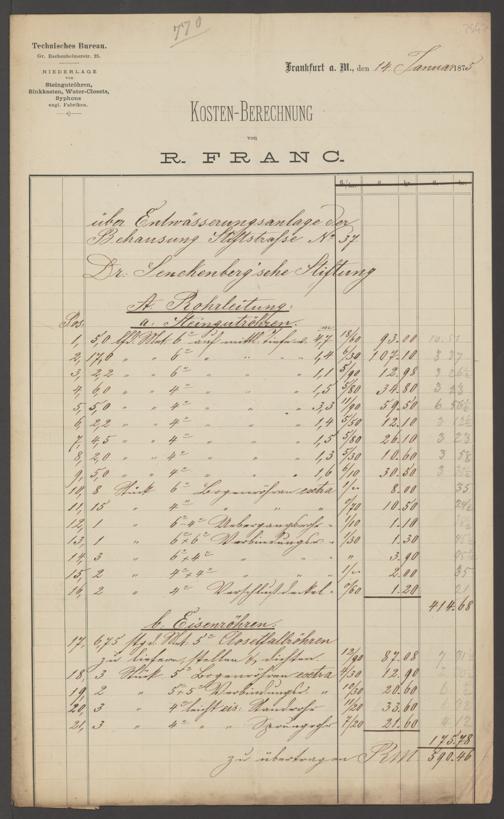 770
Technisches Bureau.
Gr. Eschenheimerstr. 25.
NIEDERLAGE
von
Steingutröhren,
Sinkkasten, Water-Closets,
Syphons
engl. Fabriken.
Frankfurt a. M., den 14. Januar 1875
KOSTEN-BERECHNUNG
von
R. FRANC.
über Entwässerungsanlage der
Behausung Stiftstraße No 37
Dr. Senckenberg'sche Stiftung
A. Rohrleitung.
Pos. a. Steingutröhren.
1, 5,0 lfd. Met. 6" auf mittl. Tiefe v. 4,7 18/60 93.00
2, 17,6 " " 6" " " " 1,4 107.10
3, 2,2 " " 6" " " " 1,1 5/90 12.98
4, 6,0 " " 4" " " " 1,5 5/80 34.80
5, 5,0 " " 4" " " " 3,3 11/90 59.50
6, 2,2 " " 4" " " " 1,4 5/50 12.10
7, 4,5 " " 4" " " " 1,5 5/80 26.10
8, 2,0 " " 4" " " " 1,3 5/30 10.60
9, 5,0 " " 4" " " " 1,6 6/10 30.50
10, 8 Stück 6" Bogenröhren extra 1/– 8.00
11, 15 " 4" " " " /70 10.50
12, 1 " 6"-4" Uebergangsrohr " 1/10 1.10
13, 1 " 6"+6" Verbindungsr. " 1/30 1.30
14, 3 " 6"+4" " " " 3.90
15, 2 " 4"+4" " " 1/– 2.00
16, 2 " 4" Verschlußdeckel " /60 1.20
414.68
b. Eisenröhren.
17, 6,75 lfd. Met. 5"
zu liefern, stellen &, dichten 12/90 87.08
18, 3 Stück 5" Bogenröhren extra 4/30 12.90
19, 2 " 5"+5" Verbindungsr. " 10/30 20.60
20, 3 " 4" leicht eis. Standrohr 11/20 33.60
21, 3 " 4" " " Sprungrohr 7/20 21.60
175.78
zu übertragen RM 590.46